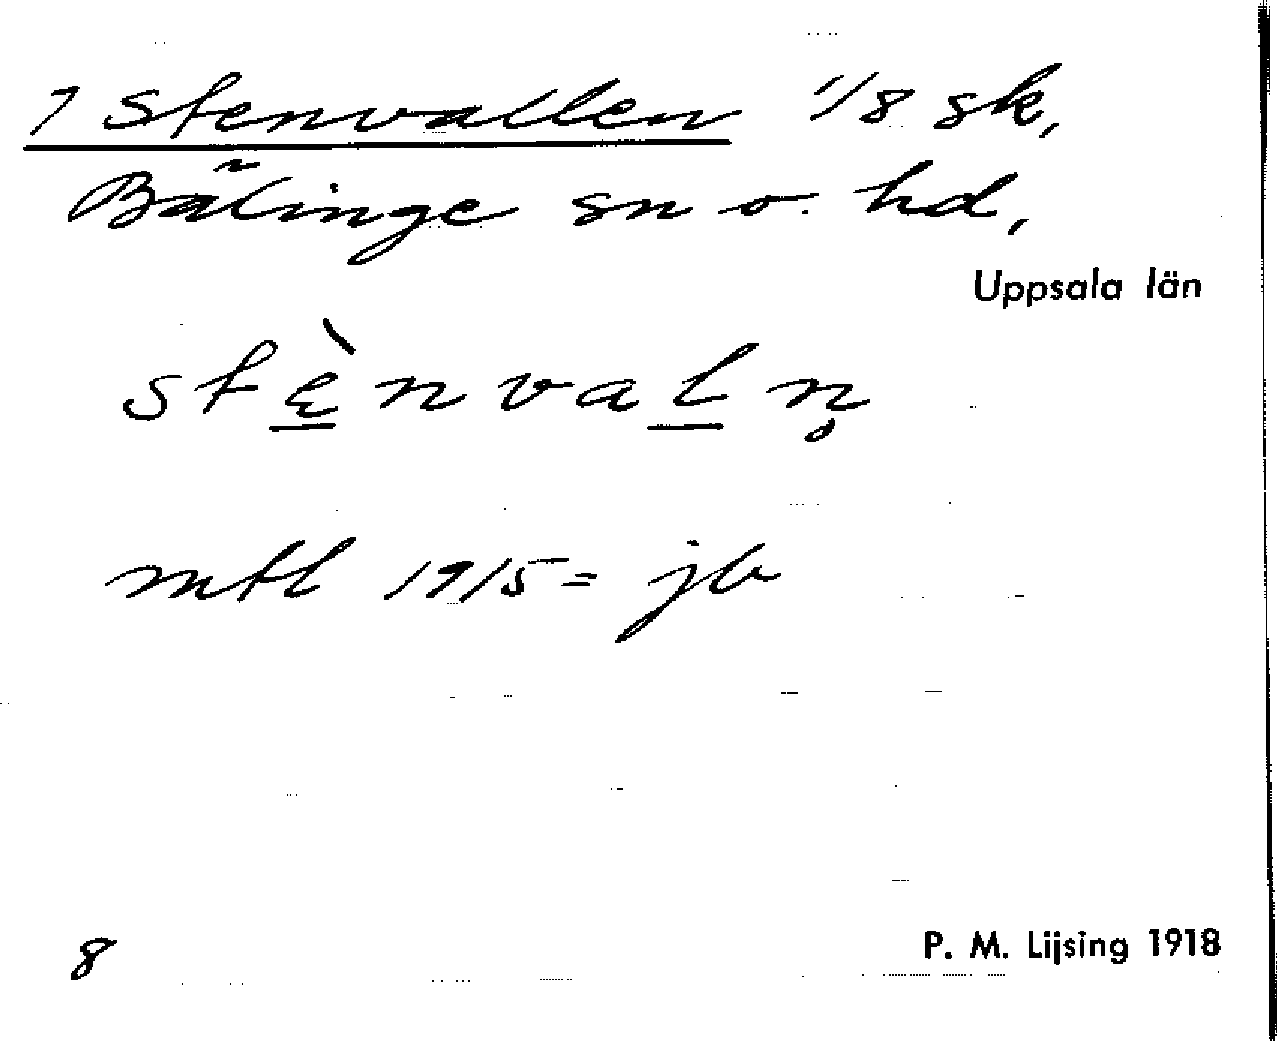 1 Stenvallen 1/8 sk,
Bälinge sn o. hd,
Uppsala län
stę̀nvaln̥
mtl 1915 = jb
8
P. M. Lijsing 1918